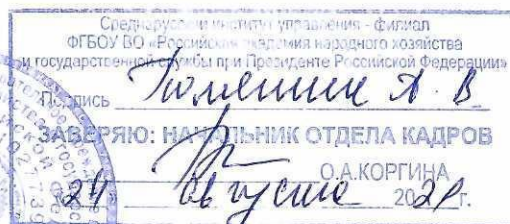 Среднерусский институт управления - филиал
ФГБОУ ВО «Российская академия народного хозяйства
и государственной службы при Президенте Российской Федерации»
Подпись А. В.
ЗАВЕРЯЮ: НАЧАЛЬНИК ОТДЕЛА КАДРОВ
О.А.КОРГИНА
24 августа 202 г.